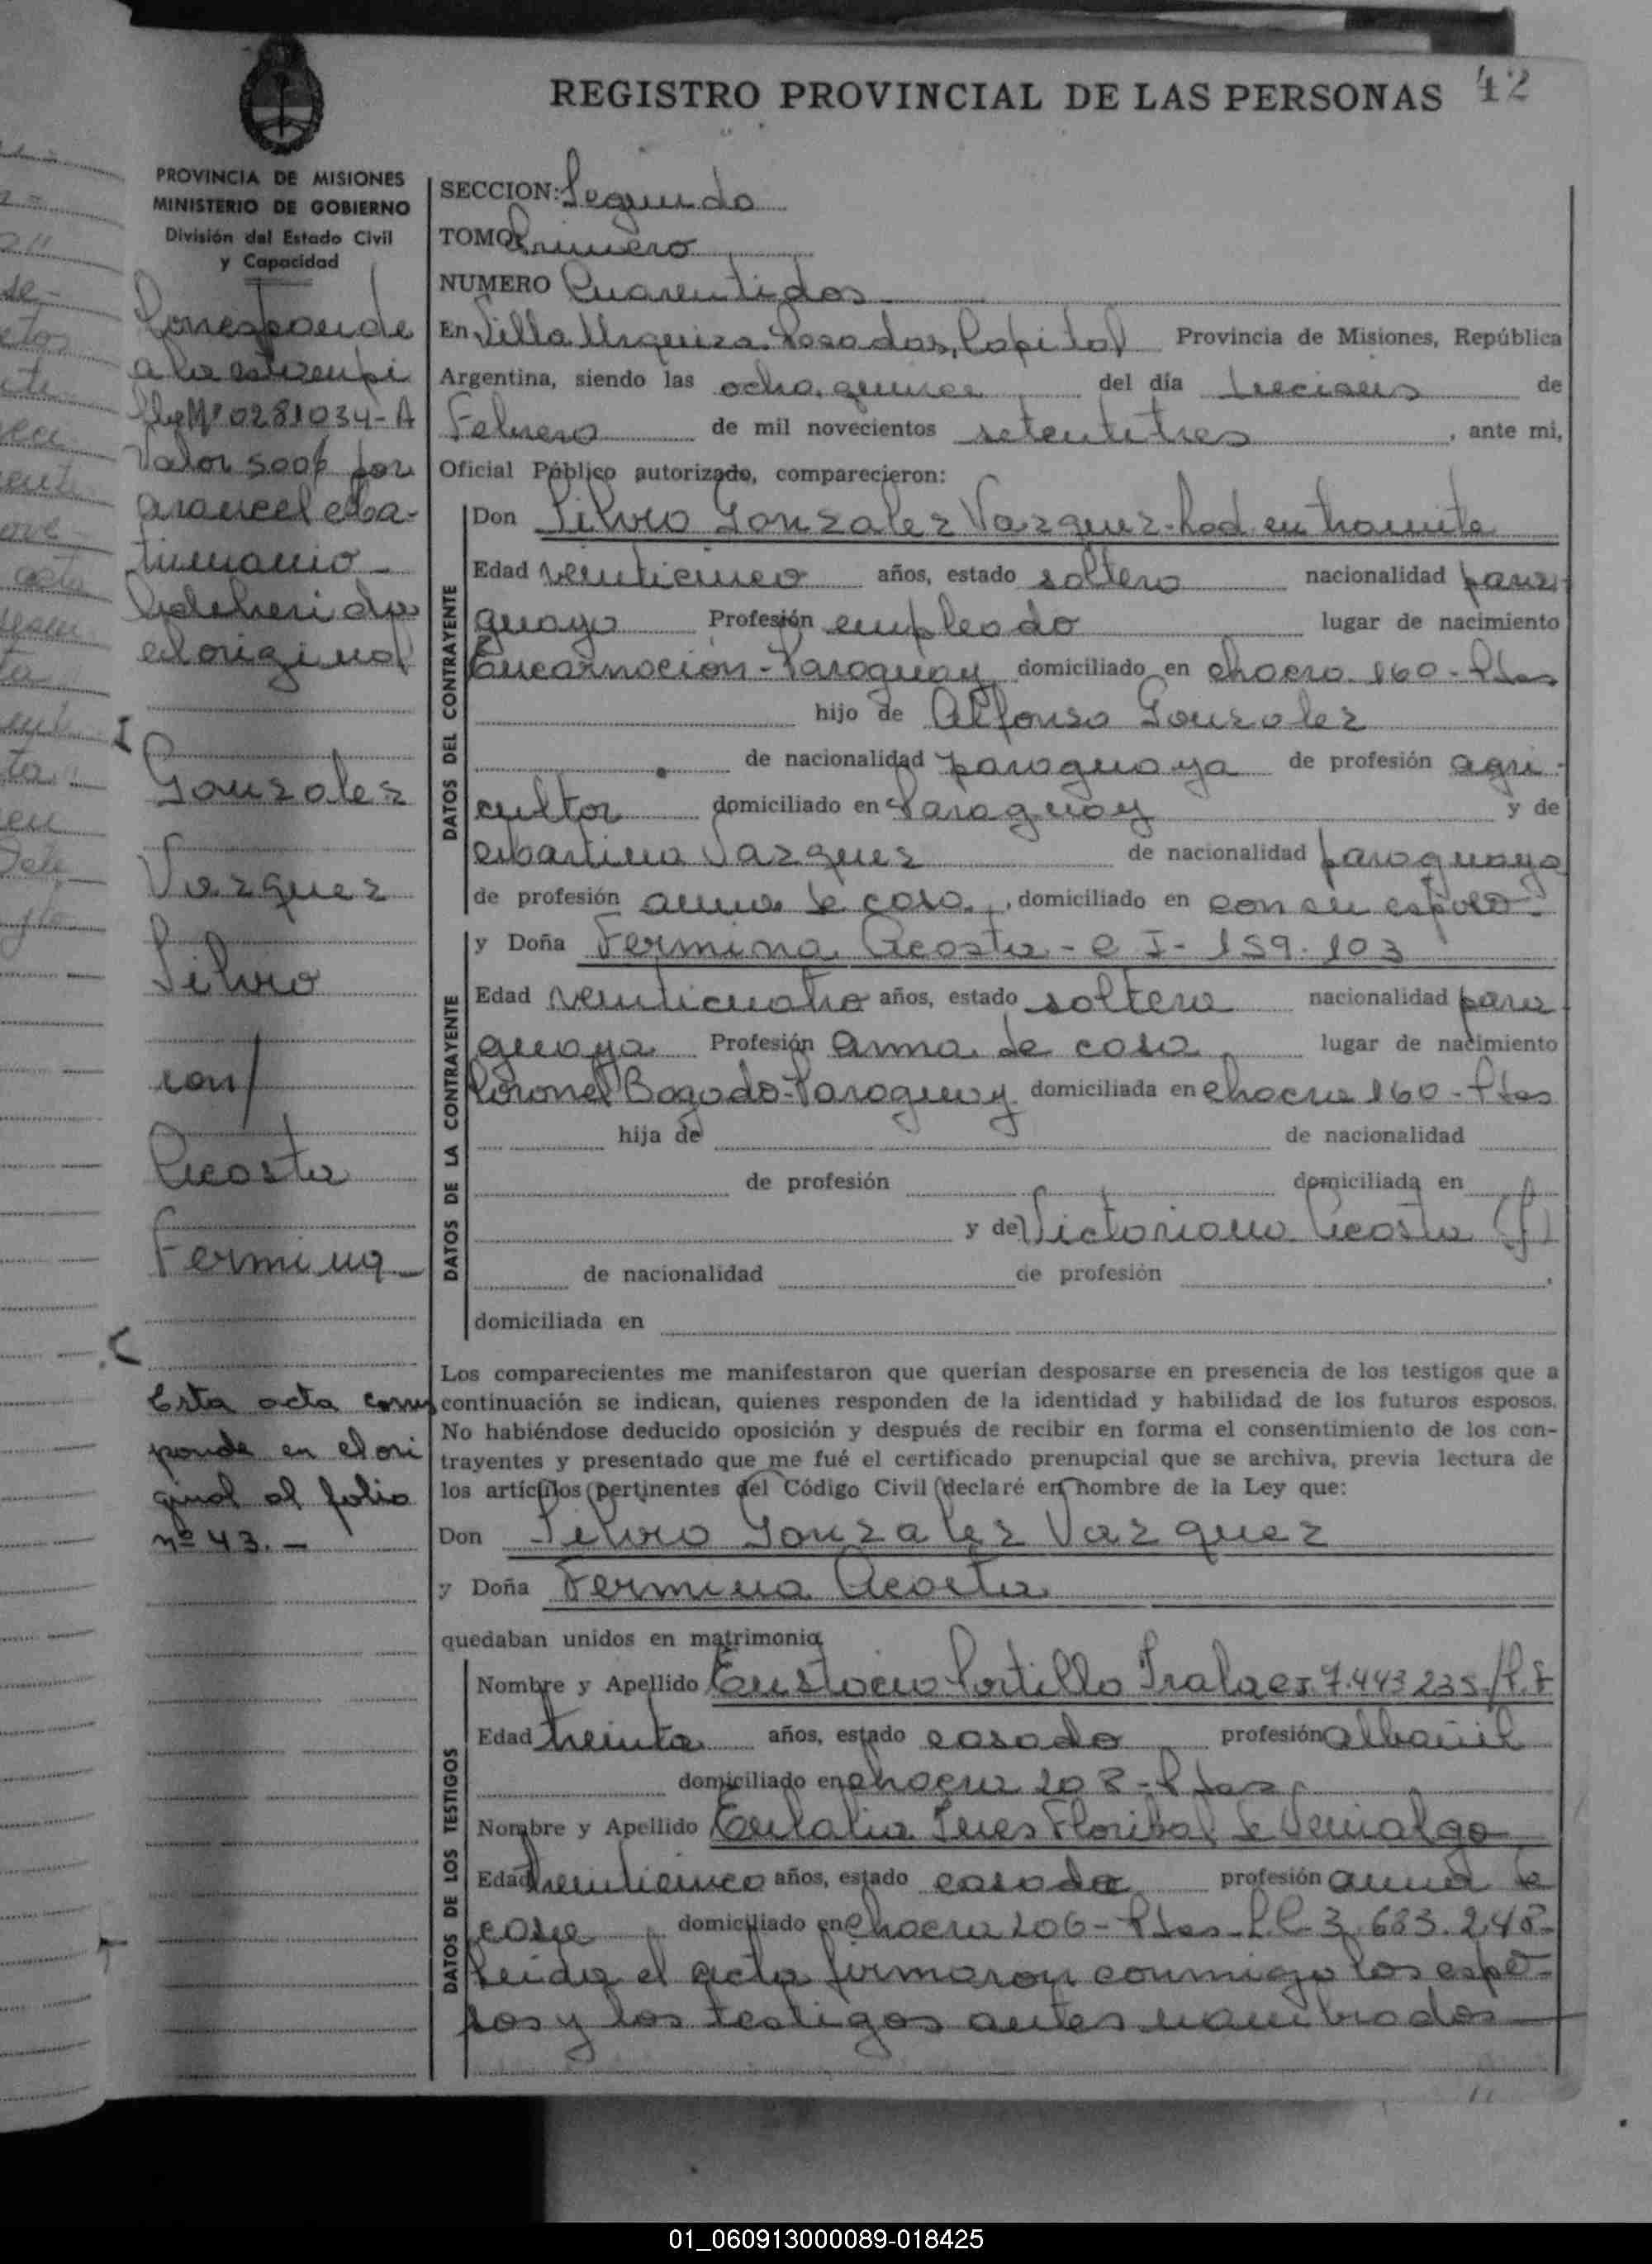 REGISTRO PROVINCIAL DE LAS PERSONAS 42
PROVINCIA DE MISIONES
MINISTERIO DE GOBIERNO
División del Estado Civil
y Capacidad
Corresponde
a la estampi
lla Nº 0281034-A
Valor 500$ por
arancel
Adherida
el original
Gonzalez
Vazquez
Silvio
con/
Acosta
Fermina
Esta acta corres
ponde en el ori
ginal al folio
nº 43.-
SECCION: Segunda
TOMO Primero
NUMERO Cuarentidos
En Villa Urquiza. Posadas, Capital Provincia de Misiones, República
Argentina, siendo las ocho, quince del día dieciseis de
Febrero de mil novecientos setentitres, ante mi,
Oficial Público autorizado, comparecieron:
DATOS DEL CONTRAYENTE
Don Silvio Gonzalez Vazquez-Rad. en tramite
Edad veinticinco años, estado soltero nacionalidad para
guaya Profesión empleado lugar de nacimiento
Encarnación-Paraguay domiciliado en chacra 160-Pdas
hijo de Alfonso Gonzalez
de nacionalidad paraguaya de profesión agri-
cultor domiciliado en Paraguay y de
Vazquez de nacionalidad paraguaya
de profesión ama de casa, domiciliado en con su esposo-
DATOS DE LA CONTRAYENTE
y Doña Fermina Acosta - C I- 159.103
Edad veinticuatro años, estado soltera nacionalidad para
guaya Profesión ama de casa lugar de nacimiento
Coronel Bogado-Paraguay domiciliada en chacra 160-Pdas
hija de de nacionalidad
de profesión domiciliada en
y de Victoriana Acosta (f)
de nacionalidad de profesión
domiciliada en
Los comparecientes me manifestaron que querían desposarse en presencia de los testigos que a
continuación se indican, quienes responden de la identidad y habilidad de los futuros esposos.
No habiéndose deducido oposición y después de recibir en forma el consentimiento de los con-
trayentes y presentado que me fué el certificado prenupcial que se archiva, previa lectura de
los artículos pertinentes del Código Civil declaré en nombre de la Ley que:
Don Silvio Gonzalez Vazquez
y Doña Fermina Acosta
quedaban unidos en matrimonio
DATOS DE LOS TESTIGOS
Nombre y Apellido Eustacio Portillo CI 7.443.235/P.F
Edad treinta años, estado casado profesión albañil
domiciliado en chacra 208-Pdas
Nombre y Apellido Eulalia Ines de Venialgo
Edad treinticinco años, estado casada profesión ama de
casa domiciliado en chacra 206-Pdas-L.C 3.683.248-
Leida el acta firmaron conmigo los espo-
sos y los testigos antes nombrados
01_060913000089-018425